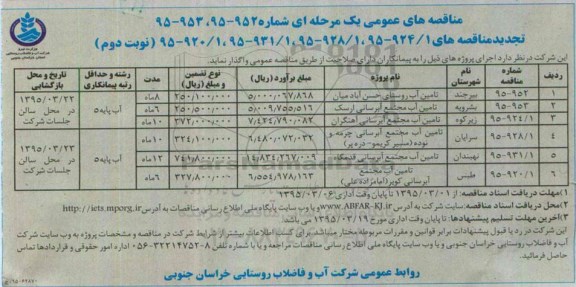 مناقصه های عمومی یک مرحله ای شماره ۹۵۲-۹۵، ۹۵۳-۹۵
تجدیدمناقصه های ۹۲۴/۱-۹۵، ۹۲۸/۱-۹۵، ۹۳۱/۱-۹۵، ۹۲۰/۱-۹۵ (نوبت دوم)
این شرکت در نظر دارد اجرای پروژه های ذیل را به پیمانکاران دارای صلاحیت از طریق مناقصه عمومی واگذار نماید.
ردیف شماره مناقصه نام شهرستان نام پروژه مبلغ برآورد (ریال) نوع تضمین و مبلغ (ریال) مدت رشته و حداقل رتبه پیمانکاری تاریخ و محل بازگشایی
۱ ۹۵-۹۵۲ بیرجند تامین آب روستای حسن آباد میان ۵/۰۰۰/۰۶۷/۸۶۸ ۲۵۰/۵۰۰/۰۰۰ ۸ماه آب پایه۵ ۱۳۹۵/۰۳/۲۲ در محل سالن جلسات شرکت
۲ ۹۵-۹۵۳ بشرویه تامین آب مجتمع آبرسانی ارسک ۵/۰۰۹/۷۵۵/۵۱۶ ۲۵۰/۵۰۰/۰۰۰ ۶ماه
۳ ۹۵-۹۲۴/۱ زیرکوه تامین آب مجتمع آبرسانی آهنگران ۷/۴۳۴/۷۹۰/۰۸۲ ۳۷۲/۰۰۰/۰۰۰ ۱۰ماه
۴ ۹۵-۹۲۸/۱ سرایان تامین آب مجتمع آبرسانی چرمه و نوده ۶/۴۸۰/۰۷۲/۰۳۲ ۳۲۴/۱۰۰/۰۰۰ ۱۰ماه آب پایه۵ ۱۳۹۵/۰۳/۲۳ در محل سالن جلسات شرکت
۵ ۹۵-۹۳۱/۱ نهبندان تامین آب مجتمع آبرسانی قدمگاه ۱۴/۸۳۴/۲۶۷/۰۰۹ ۷۴۱/۸۰۰/۰۰۰ ۱۲ماه
۶ ۹۵-۹۲۰/۱ طبس تامین آب مجتمع آبرسانی کویر (امامزاده علی) ۶/۵۵۴/۹۷۸/۱۶۳ ۳۲۷/۸۰۰/۰۰۰ ۶ماه
۱)مهلت دریافت اسناد مناقصه: از ۱۳۹۵/۰۳/۰۱ تا پایان وقت اداری ۱۳۹۵/۰۳/۰۶
۲)محل دریافت اسناد مناقصه: سایت شرکت به آدرس www.ABFAR-KJ.IR و یا وب سایت پایگاه ملی اطلاع رسانی مناقصات به آدرس http://iets.mporg.ir
۳)آخرین مهلت تسلیم پیشنهادها: تا پایان وقت اداری مورخ ۱۳۹۵/۰۳/۱۹ می باشد.
این شرکت در رد یا قبول پیشنهادات برابر قوانین و مقررات مربوطه مختار میباشد. برای کسب اطلاعات بیشتر از شرایط شرکت در مناقصه و مشخصات پروژه به وب سایت شرکت
آب و فاضلاب روستایی خراسان جنوبی و یا وب سایت پایگاه ملی اطلاع رسانی مناقصات مراجعه و یا با شماره تلفن ۸-۳۲۲۱۴۷۵۲-۰۵۶ اداره امور حقوقی و قراردادها تماس
حاصل فرمائید.
روابط عمومی شرکت آب و فاضلاب روستایی خراسان جنوبی